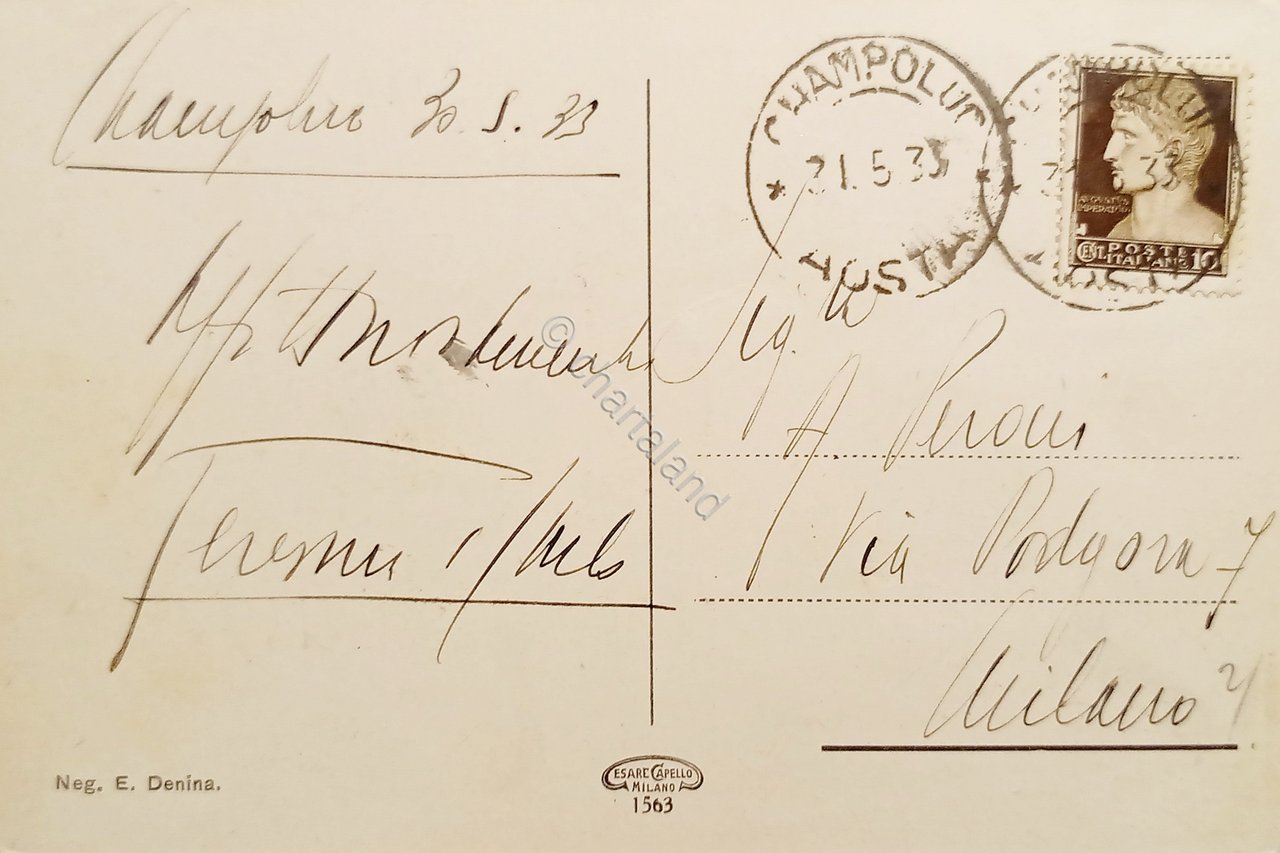 Champoluc 30.5.33
Aff.tuosamente
Teresina
Sig.ra
A. Peroni
Via Podgora 7
Milano
CHAMPOLUC
31.5.33
AOSTA
AUGUSTUS
IMPERATOR
POSTE
CENT. ITALIANE 10
© chartaland
Neg. E. Denina.
CESARE CAPELLO
MILANO
1563